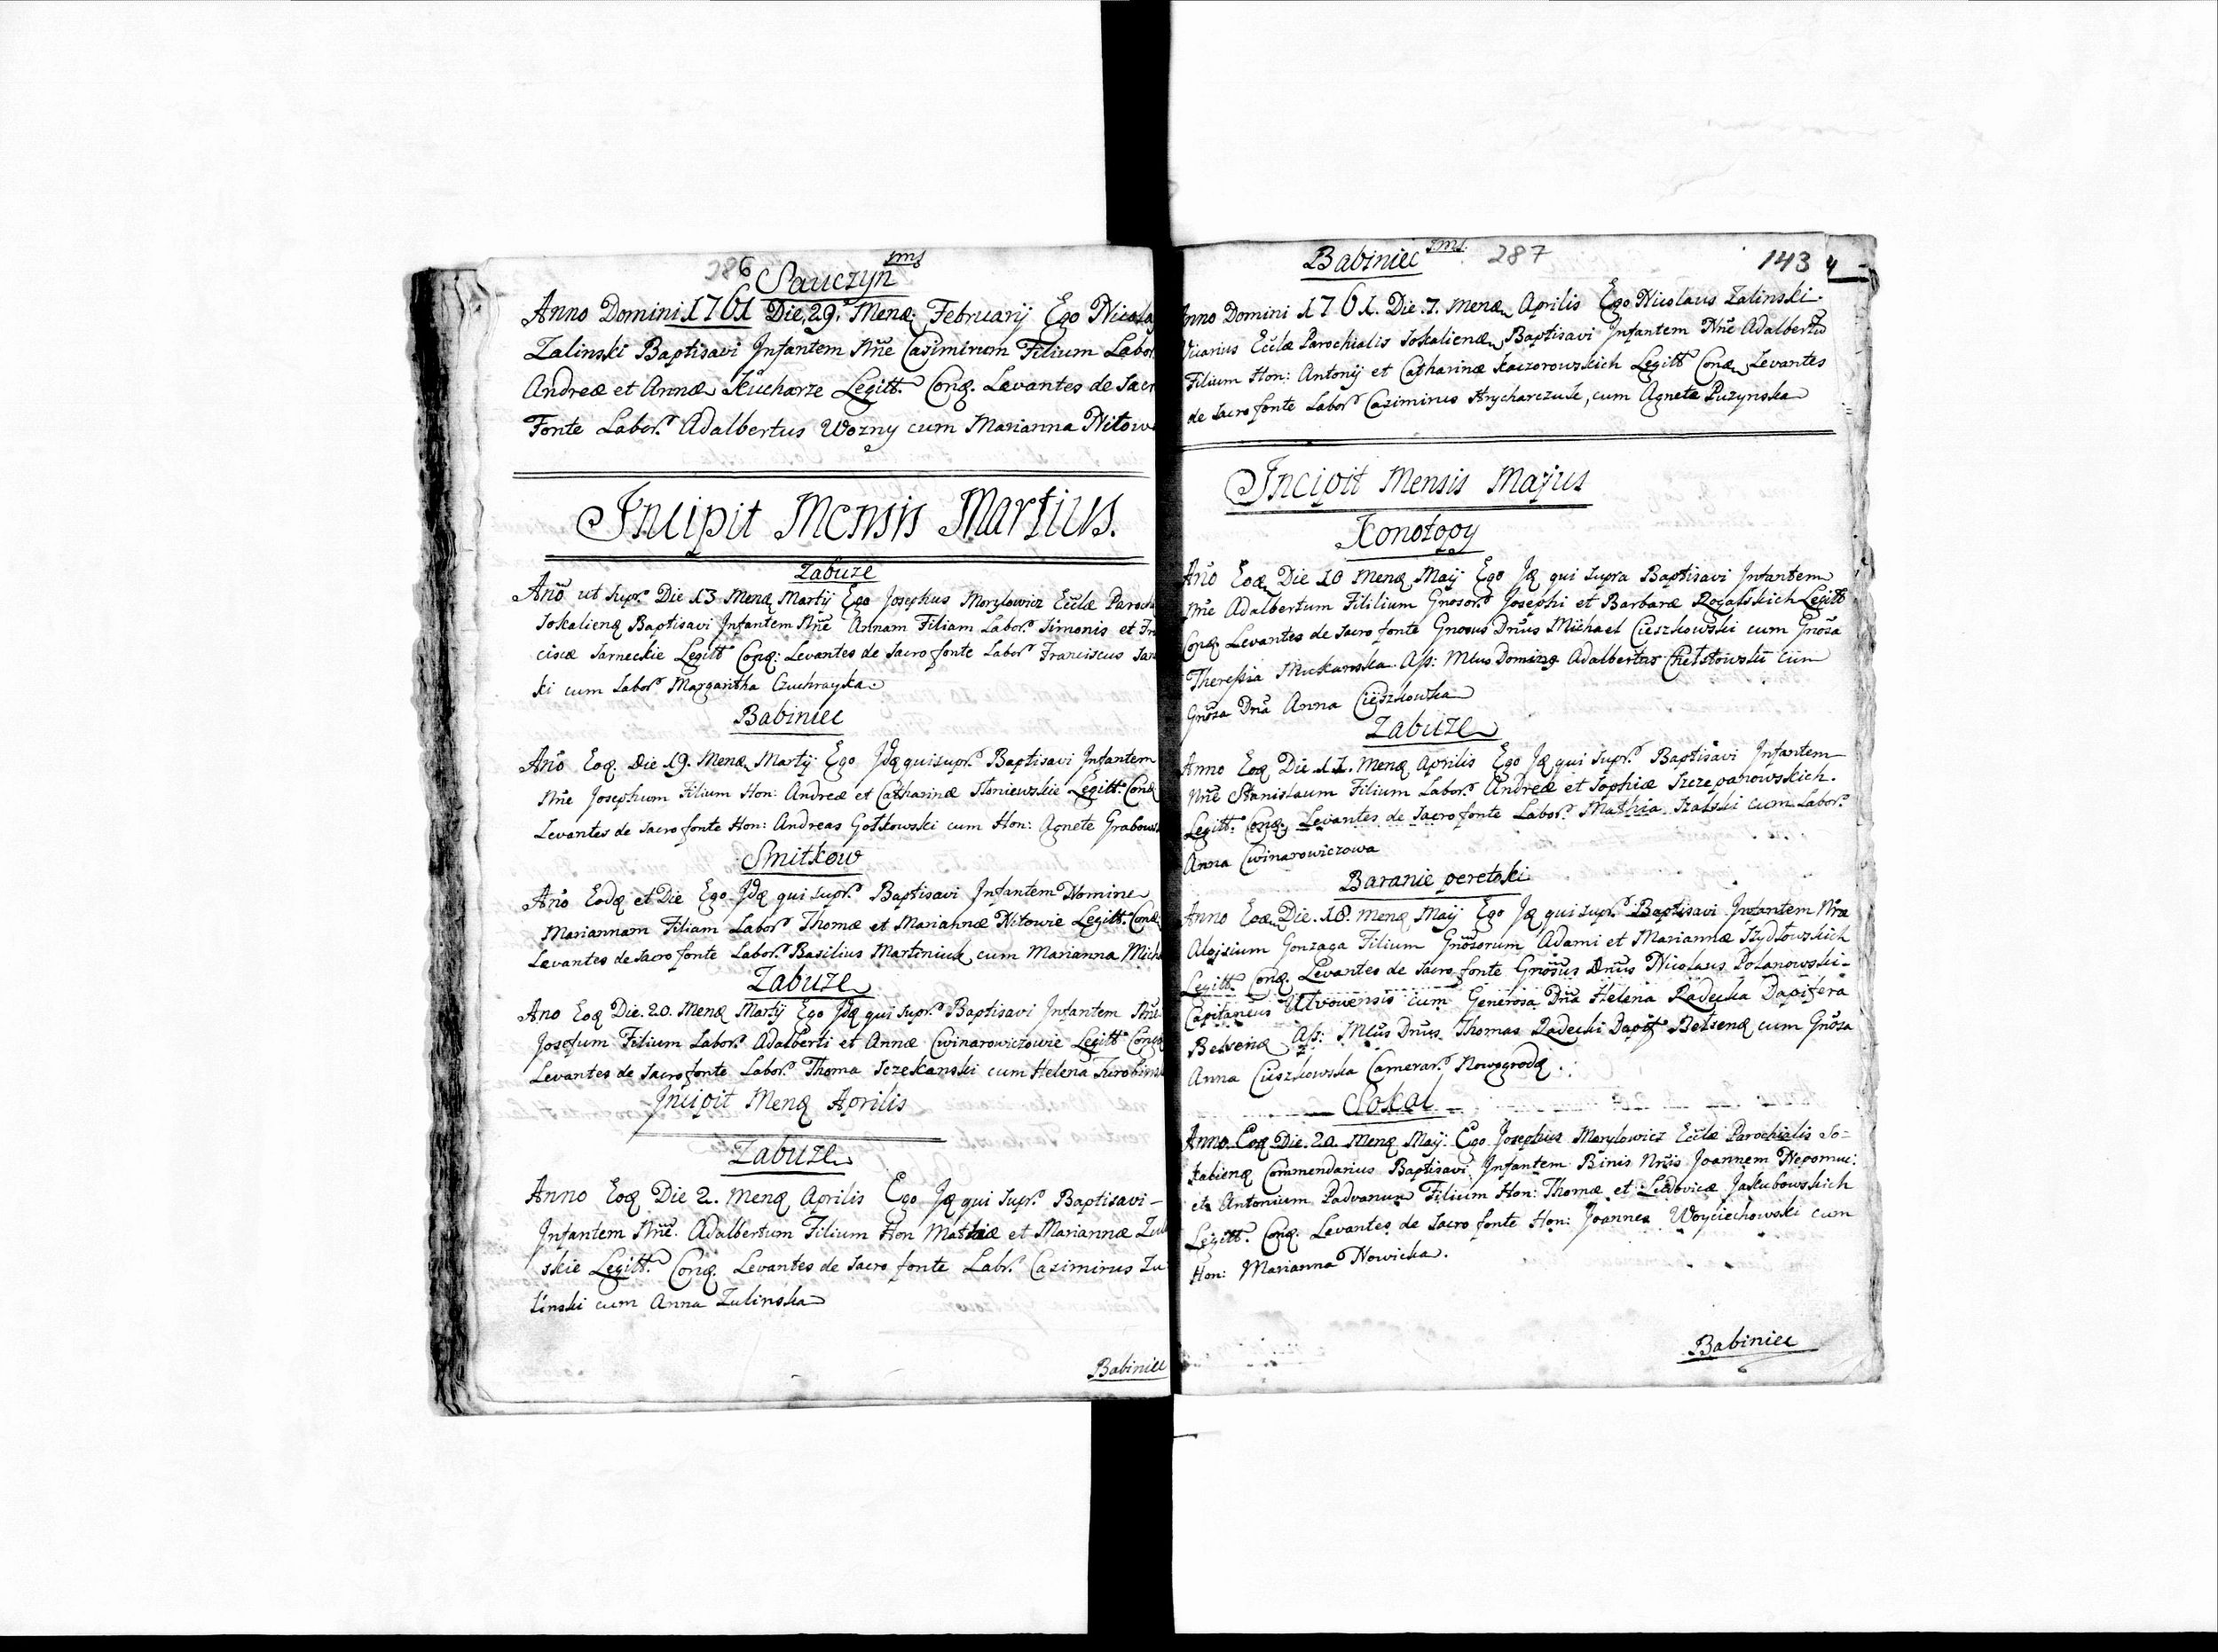 286 Sauczyn sms
Anno Domini 1761 Die 29. Menę: Februarij Ego Nicola
Zalinski Baptisavi Infantem Nñe Casimirum Filium Labor
Andreæ et Annæ Kucharze Legitt. Conę. Levantes de Sacr
Fonte Labor. Adalbertus Wozny cum Marianna Nitow
Incipit Mensis Martius.
Zabuze
Año ut supr. Die 13 Menę Martij Ego Josephus Morylowicz Ecclæ Paroch
Sokalienę Baptisavi Infantem Nñe Annam Filiam Labor. Simonis et Fr
ciscæ Sarneckie Legitt. Conę: Levantes de Sacro fonte Labor. Franciscus Sar
ki cum Labor. Margaritha Czuchrayka.
Babiniec
Año Eoę. Die 19. Menę Martij Ego Idę qui supr. Baptisavi Infantem
Nñe Josephum Filium Hon: Andreæ et Catharinæ Słoniewskie Legitt. Conę
Levantes de Sacro fonte Hon: Andreas Gołkowski cum Hon: Agnete Grabows
Smitkow
Año Eodę et Die Ego Idę qui supr. Baptisavi Infantem Nomine
Mariannam Filiam Labor. Thomæ et Mariannæ Nitowie Legitt. Conę
Levantes de Sacro fonte Labor. Basilius Martiniuk cum Marianna Mich
Zabuze
Ano Eoę Die. 20. Menę Martij Ego Idę qui supr. Baptisavi Infantem Nñe
Josefum Filium Labor. Adalberti et Annæ Cwinarowiczowie Legitt. Conę
Levantes de Sacro fonte Labor. Thoma Sczekanski cum Helena Turobins
Incipit Menę Aprilis
Zabuze
Anno Eoę Die 2. Menę Aprilis Ego Ię qui supr. Baptisavi -
Infantem Nñe. Adalbertum Filium Hon Mathiæ et Mariannæ Zul
skie Legitt. Conę. Levantes de Sacro fonte Labr. Casimirus Zu
linski cum Anna Zulinska
Babiniec
Babiniec sms. 287 143
Anno Domini 1761. Die. 7. Menę Aprilis Ego Nicolaus Zalinski
Vicarius Ecclæ Parochialis Sokalienę Baptisavi Infantem Nñe Adalbertū
Filium Hon: Antonij et Catharinæ Kaczorowskich Legitt Conę Levantes
de Sacro fonte Labor. Casimirus Hrycharczuk, cum Agneta Puzynska
Incipit Mensis Majus
Konotopy
Año Eoę Die 10 Menę Maij Ego Ię qui supra Baptisavi Infantem
Nñe Adalbertum Fililium Gnosor. Josephi et Barbaræ Rogalskich Legitt
Conę Levantes de Sacro fonte Gnosus Dñus Michael Cieszkowski cum Gnosa
Theressia Muckanska. Ass: Mlus Dominę Adalbertus Chełstowski cum
Gnosa Dña Anna Cieszkowska
Zabuze
Anno Eoę Die 11. Menę Aprilis Ego Ię qui supr. Baptisavi Infantem
Nñe Stanislaum Filium Labor. Andreæ et Sophiæ Szczepanowskich.
Legitt. Conę. Levantes de Sacro fonte Labor. Mathia Szalski cum Labor.
Anna Cwinarowiczowa
Baranie peretoki
Anno Eoę Die. 18. Menę Maij Ego Ię qui supr. Baptisavi Infantem Nñe
Alojsium Gonzaga Filium Gnosorum Adami et Mariannæ Szydłowskich
Legitt. Conę Levantes de Sacro fonte Gnosus Dñus Nicolaus Polanowski -
Capitaneus Utvovensis cum Generosa Dña Helena Radecka Dapifera
Belsenę Ass: Mlus Dñus Thomas Radecki Dapif. Belsenę cum Gnosa
Anna Cieszkowska Camerar. Nowogrodę.
Sokal
Anno Eoę Die. 20 Menę Maij. Ego Josephus Morylowicz Ecclæ Parochialis So=
kalienę Commendarius Baptisavi Infantem Binis Nñis Joannem Nepomuc:
et Antonium Padvanum Filium Hon: Thomæ et Ludovicæ Jakubowskich
Legitt. Conę. Levantes de Sacro fonte Hon: Joannes Woyciechowski cum
Hon: Marianna Nowicka.
Babiniec